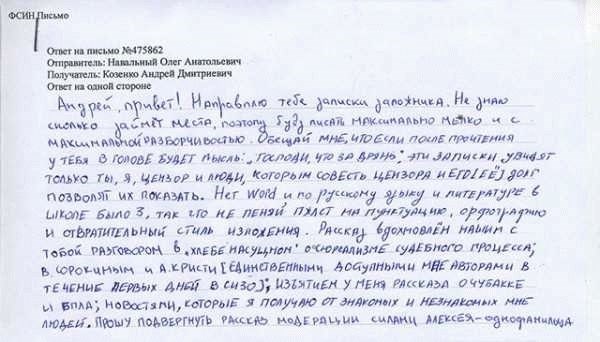 ФСИН Письмо
Ответ на письмо №475862
Отправитель: Навальный Олег Анатольевич
Получатель: Козенко Андрей Дмитриевич
Ответ на одной стороне
Андрей, привет! Направлю тебе записки заложника. Не знаю
сколько займёт места, поэтому буду писать максимально мелко и с
максимальной разборчивостью. Обещай мне, что если после прочтения
у тебя в голове будет мысль: „Господи, что за дрянь", эти записки увидят
только ты, я, цензор и люди, которым совесть цензора и его [её] долг
позволят их показать. Нет Word и по русскому языку и литературе в
школе было 3, так что не пеняй пжлст на пунктуацию, орфографию
и отвратительный стиль изложения. Рассказ вдохновлён нашим с
тобой разговором в „Хлебе насущном" о сюрреализме судебного процесса;
В. Сорокиным и А. Кристи [единственными доступными мне авторами в
течение первых дней в СИЗО]; изъятием у меня рассказа о Чубакке
и ВПЛА; новостями, которые я получаю от знакомых и незнакомых мне
людей. Прошу подвергнуть рассказ модерации силами Алексея-однофамильца